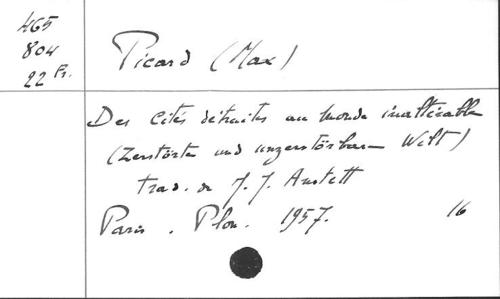 465
804
22 Fr.
Picard (Max)
Des Cités détruites au monde inaltérable
(Zerstörte und unzerstörbare Welt)
trad. de J. J. Anstett
Paris. Plon. 1957. 16